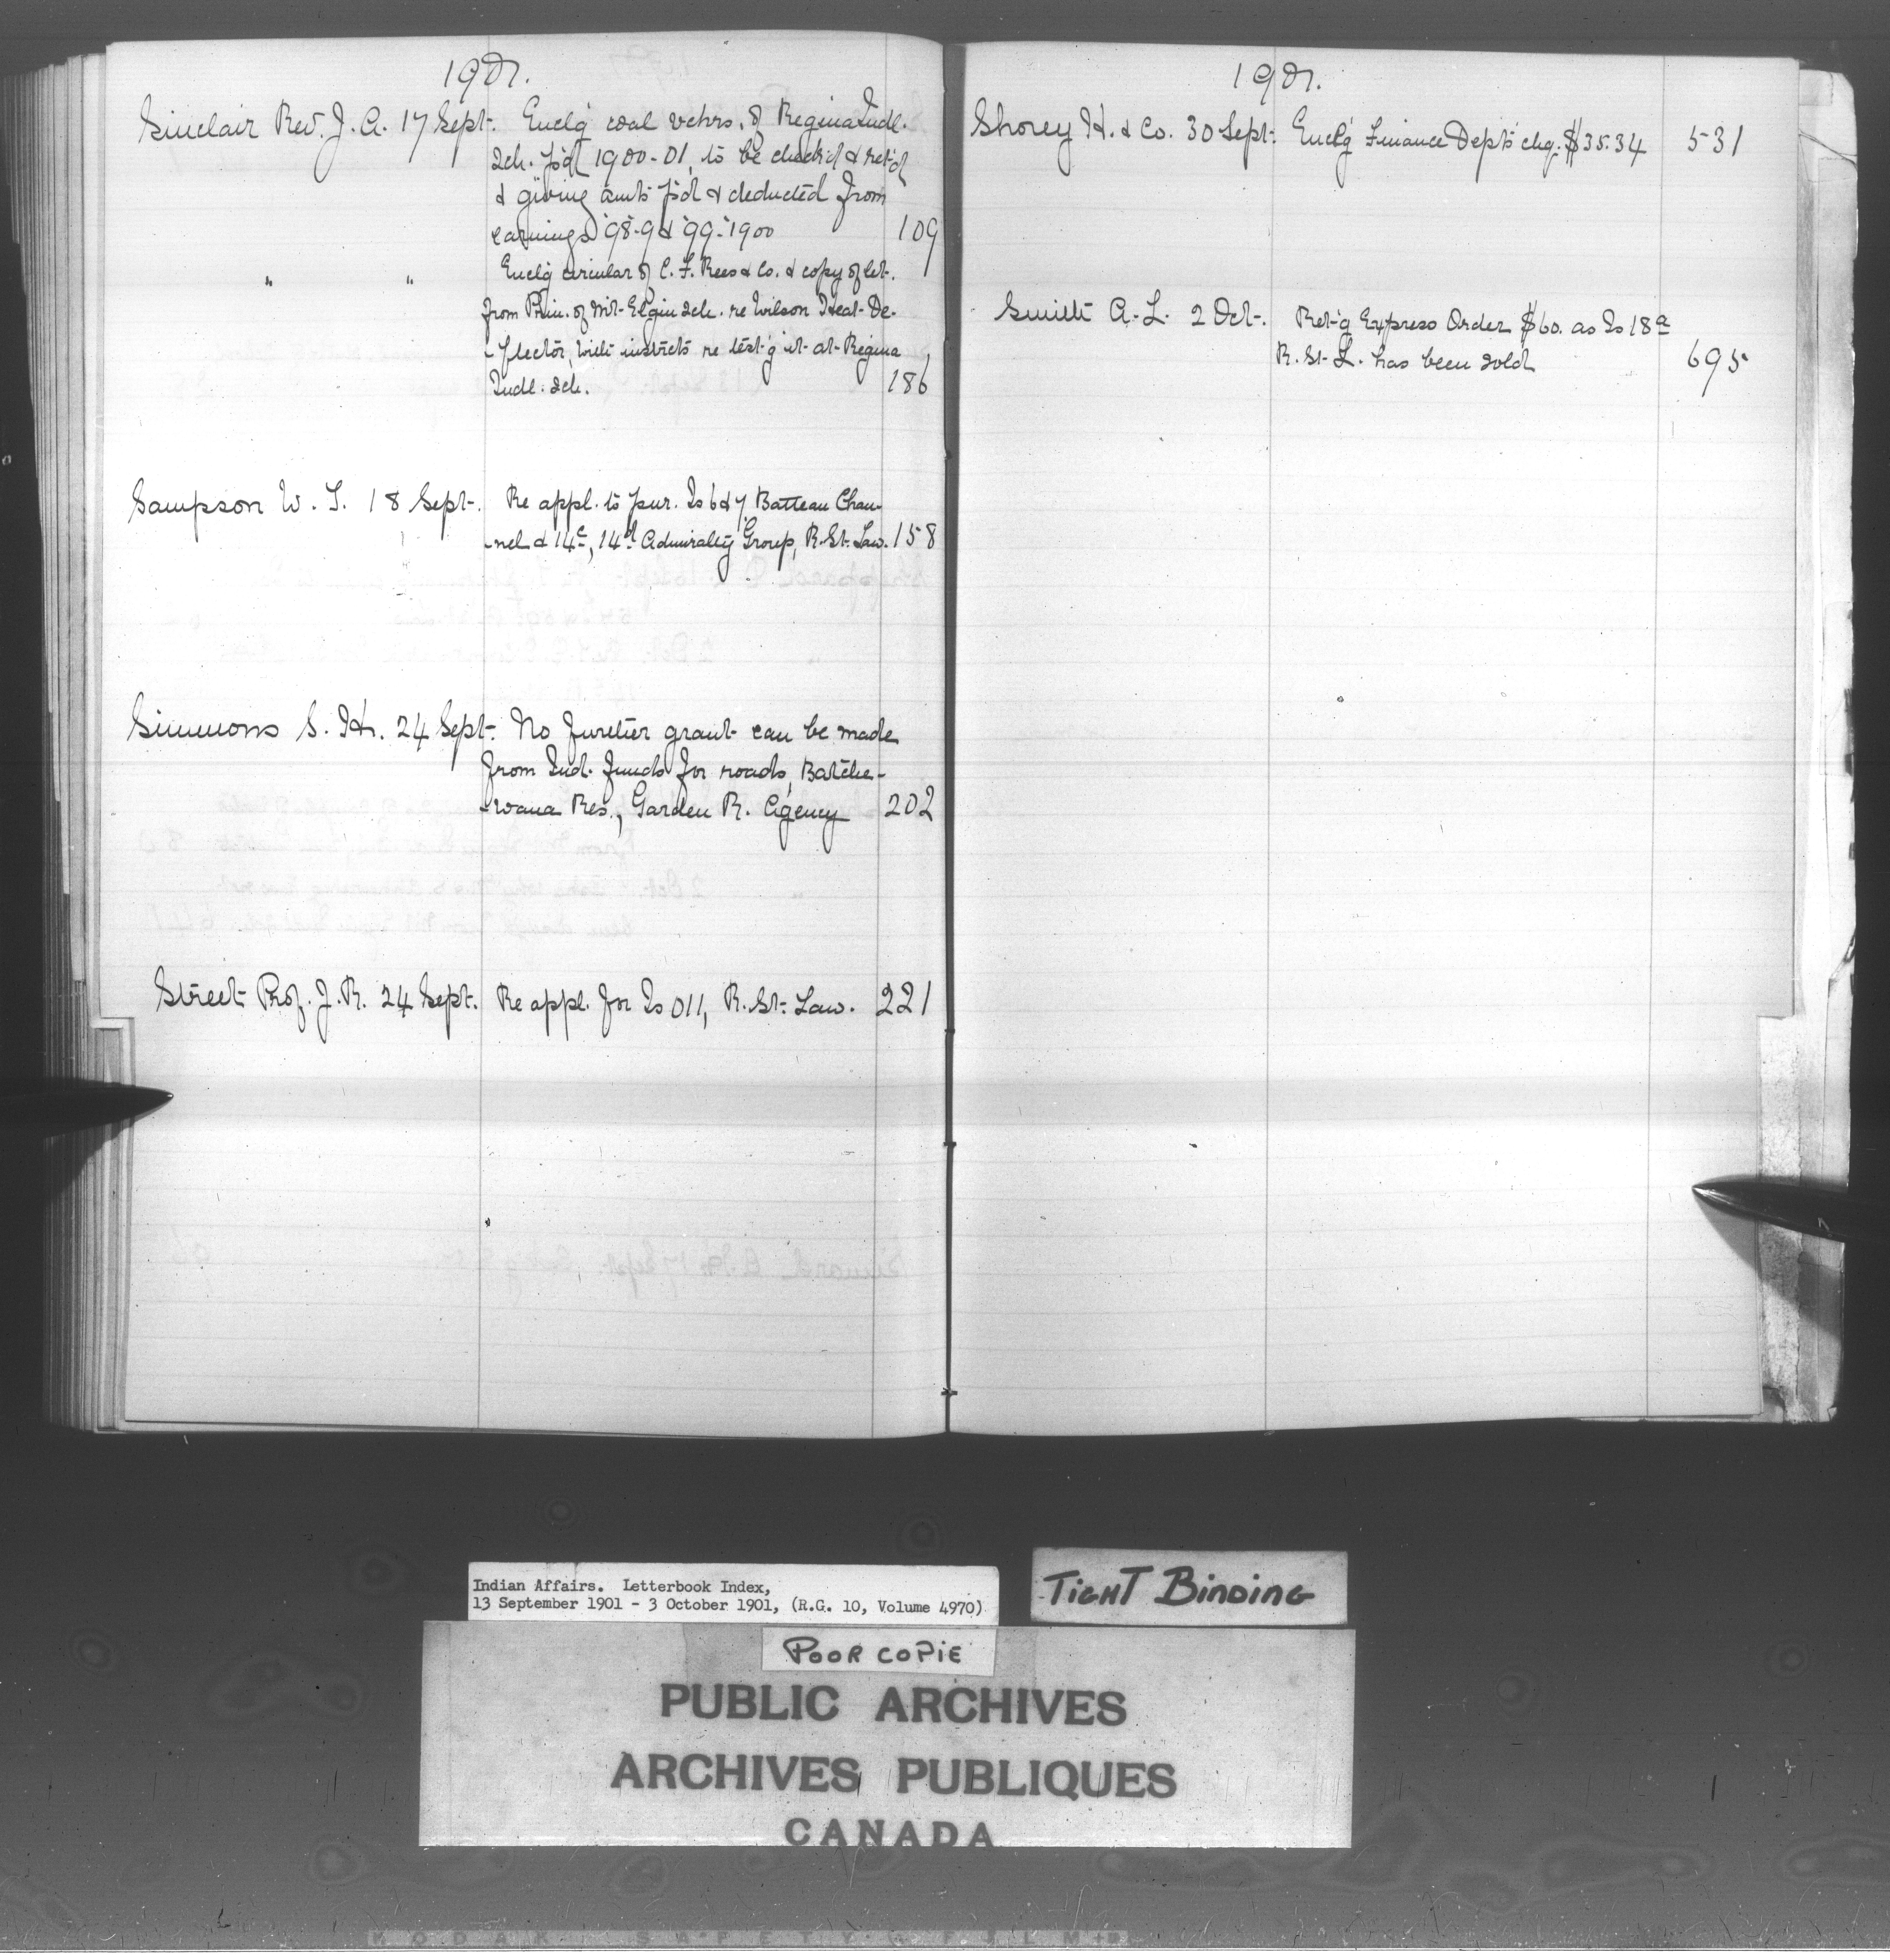 1901.
Sinclair Rev. J. A. 17 Sept. Encl'g coal vchrs. of Regina Indl.
Sch. p'd 1900-01, to be check'd & ret'd
& giving amts p'd & deducted from
earnings '98-9 & '99-1900 109
" " Encl'g circular of C. F. Rees & Co. & copy of let.
from Prin. of Mt. Elgin Sch. re Wilson Heat De-
-flector, with instructs re test'g it at Regina
Indl. Sch. 186
Sampson W. T. 18 Sept. Re appl. to pur. Is 6 & 7 Batteau Chan-
-nel & 14c, 14d Admiralty Group, R. St. Law. 158
Simmons S. H. 24 Sept. No further grant can be made
from Ind. funds for roads, Batche-
-wana Res., Garden R. Agency 202
Street Prof. J. R. 24 Sept. Re appl. for Is O11, R. St. Law. 221
1901.
Shorey H. & Co. 30 Sept. Encl'g Finance Dept's chq. $35.34 531
Smith A. L. 2 Oct. Ret'g Express Order $60. as Is 18a
R. St. L. has been sold 695
Indian Affairs. Letterbook Index,
13 September 1901 - 3 October 1901, (R.G. 10, Volume 4970)
TIGHT BINDING
POOR COPIE
PUBLIC ARCHIVES
ARCHIVES PUBLIQUES
CANADA
KODAK SAFETY FILM